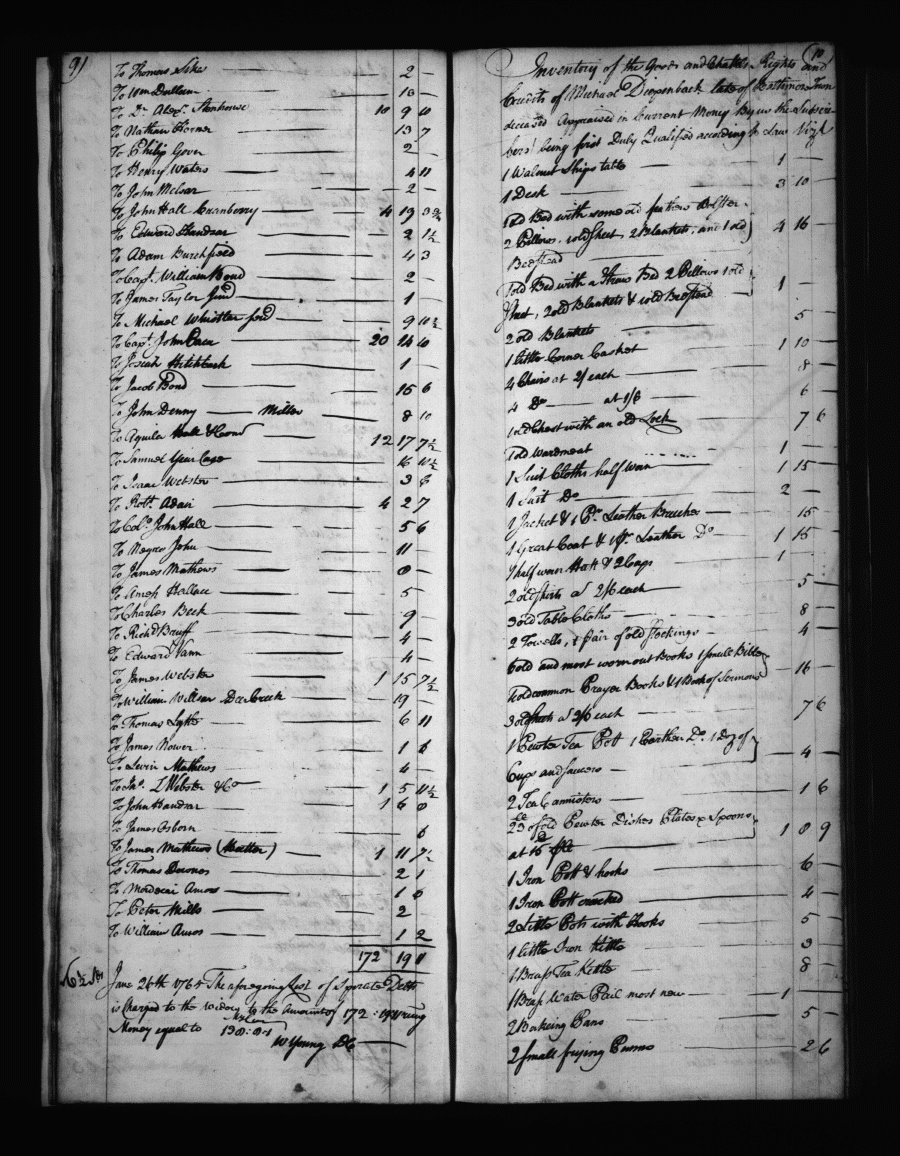 9)
To Thomas Sike 2 —
To Wm Dallam 10 —
To Dr. Alexr. Stenhouse 10 9 10
To Nathan Horner 13 7
To Philip Gover 2 —
To Henry Waters 4 11
To John McLoar 2 —
To John Hall Cranberry 4 19 3
To Edward Hanson 2 1½
To Adam Burchfield 4 3
To Capt. William Bond 2 —
To James Taylor Junr 1 —
To Michael Whistler for 9 10½
To Capt. John 20 14 10
To Josiah Hitchcock 1 —
To Jacob Bond 15 6
To John Denny — Miller 8 10
To Aquila Hall & Cond 12 17 7½
To Samuel Cage 16 10½
To Isaac Webster 3 8
To Robt. Adair 4 2 7
To Colo. John Hall 5 6
To Negro John 11 —
To James Mathews 8 —
To Amos Hollace 5 —
To Charles Beck 9 —
To Richd Bruff 4 —
To Edward Vann 4 —
To James Webster 1 15 7½
To William Willson 19 —
To Thomas Lytle 6 11
To James Nower 1 6
To Levin Mathews 4 —
To Jno. L Webster & Co 1 5 11½
To John Hansar 1 6 8
To James Osborn 6
To James Mathews (Hatter) 1 11 7½
To Thomas Downes 2 1
To Mordecai Amos 1 6
To Peter Mills 2
To William Amos 1 2
172 19 11
June 26th 1765 The aforegoing List of Sperate Debts
is Charged to the Widow to the Amount of 172:19:11
Money equal to
W Young DC
10
Inventory of the Goods and Chattels Rights and
Credits of Michael Diepenback late of Baltimore Town
deceased Appraised in Current Money By us the Subscri
bers being first Duly Qualified according to Law Vizt
1 Walnut Ships table 1 —
1 Desk 3 10 —
1 old Bed with some old feathers Bolster
2 Pillows, 1 old Sheet, 2 Blankets, and 1 old 4 16 —
Bedstead
1 old Bed with a Straw Bed 2 Pillows 1 old
Sheet, 2 old Blankets & 1 old Bedstead 1 —
2 old Blankets 5 —
1 little Corner Casket 1 10 —
4 Chairs at 2/ each 8 —
4 Do at 1/6 6
1 old Chest with an old Lock 7 6
1 old 1 —
1 Suit Cloths half worn 1 15 —
1 Suit Do 2 —
1 Jacket & 1 Pr. Leather Breeches 15
1 Great Coat & 1 Pr. Leather Do 1 15 —
1 half worn Hatt & 2 Caps 1 —
2 old Shirts at 2/6 each 5 —
3 old Table Cloths 8 —
2 Towells, 1 pair of old Stockings 4 —
6 old and most wornout Books 1 small Bible
1 old common Prayer Book & 1 Book of Sermons 16 —
3 old Sheets at 2/6 each 7 6
1 Pewter Tea Pott 1 Earthen Do. 1 Doz of
Cups and Saucers 4 —
2 Tea Cannisters 1 6
of old Pewter Dishes Plates & Spoons
1 8 9
1 Iron Pott & hooks 6 —
1 Iron Pott cracked 4 —
2 Little Pots with Hooks 5 —
1 little Iron Kettle 3
1 Brass Tea Kettle 8 —
1 Brass Water Pail most new 1 —
2 Bakeing Pans 5 —
2 small frying Panns 2 6